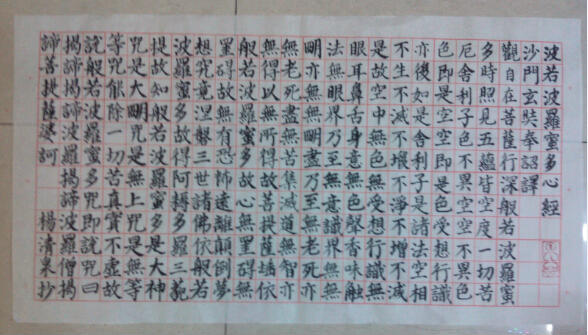 波若波羅蜜多心經
沙門玄奘奉詔譯
觀自在菩薩行深般若波羅蜜
多時照見五蘊皆空度一切苦
厄舍利子色不異空空不異色
色即是空空即是色受想行識
亦復如是舍利子是諸法空相
不生不滅不垢不淨不增不減
是故空中無色無受想行識無
眼耳鼻舌身意無色聲香味觸
法無眼界乃至無意識界無無
明亦無無明盡乃至無老死亦
無老死盡無苦集滅道無智亦
無得以無所得故菩提薩埵依
般若波羅蜜多故心無罣礙無
罣礙故無有恐怖遠離顛倒夢
想究竟涅槃三世諸佛依般若
波羅蜜多故得阿耨多羅三藐
提故知般若波羅蜜多是大神
咒是大明咒是無上咒是無等
等咒能除一切苦真實不虛故
說般若波羅蜜多咒即說咒曰
揭諦揭諦波羅揭諦波羅僧揭
諦菩提薩婆訶 楊清泉抄